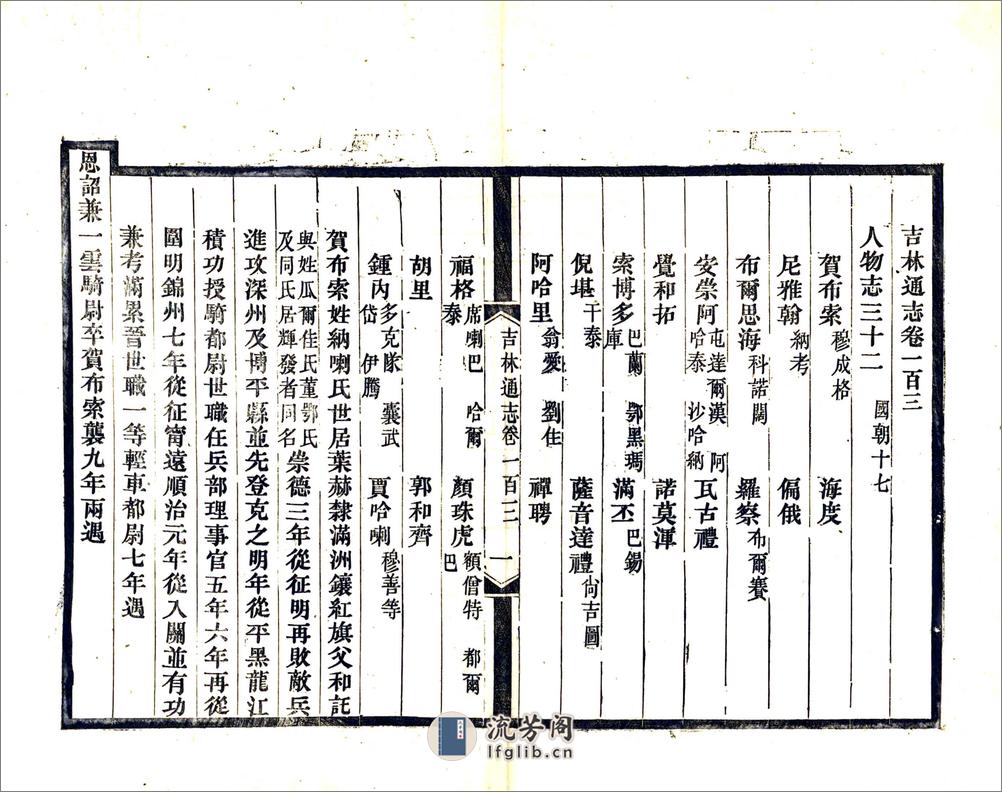 吉林通志卷一百三
人物志三十二 國朝十七
賀布索 穆成格 海度
尼雅翰 納考 偏俄
布爾思海 科諾闊 羅察 布爾賽
安崇阿 屯達爾漢 阿哈泰 沙哈納 瓦古禮
覺和拓 諾莫渾
索博多 巴蘭 鄂黑瑪庫 滿丕 巴錫
倪堪 干泰 薩音達禮 尙吉圖
阿哈里 翁愛 劉住 禪聘
吉林通志卷一百三 一
福格 席喇巴 哈爾泰 顏珠虎 額僧特 都爾巴
胡里 郭和齊
鍾內 多克隊 囊武岱 伊騰 賈哈喇 穆善等
賀布索姓納喇氏世居葉赫隸滿洲鑲紅旗父和託
與姓瓜爾佳氏董鄂氏及同氏居輝發者同名崇德三年從征明再敗敵兵
進攻深州及博平縣並先登克之明年從平黑龍江
積功授騎都尉世職任兵部理事官五年六年再從
圍明錦州七年從征甯遠順治元年從入關並有功
兼考滿累晉世職一等輕車都尉七年遇
恩詔兼一雲騎尉卒賀布索襲九年兩遇
流芳阁
lfglib.cn